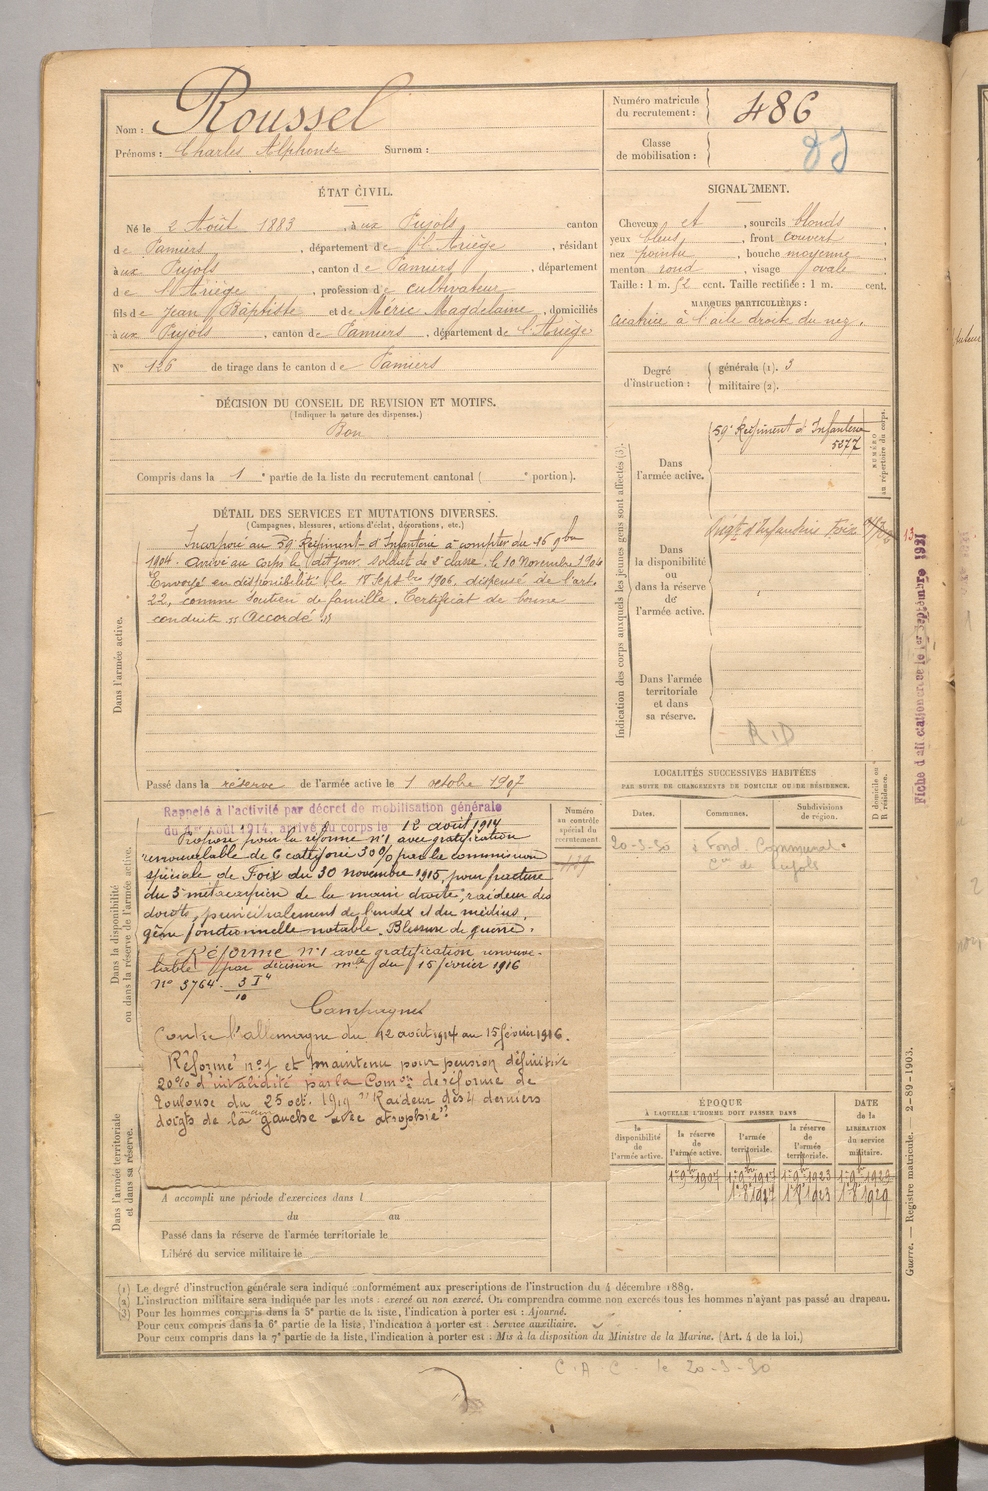 Nom : Roussel
Prénoms : Charles Alphonse Surnom :
Numéro matricule du recrutement : 486
Classe de mobilisation :
ÉTAT CIVIL.
Né le 2 Août 1883, à ux Pujols, canton
de Pamiers, département de l'Ariège, résidant
à ux Pujols, canton de Pamiers, département
de l'Ariège, profession de cultivateur
fils de Jean Baptiste et de Méric Magdelaine, domiciliés
à ux Pujols, canton de Pamiers, département de l'Ariège
N° 126 de tirage dans le canton de Pamiers
SIGNALEMENT.
Cheveux et, sourcils blonds,
yeux bleus, front couvert,
nez pointu, bouche moyenne,
menton rond, visage ovale
Taille : 1 m. 52 cent. Taille rectifiée : 1 m. cent.
MARQUES PARTICULIÈRES :
cicatrice à l'aile droite du nez.
Degré d'instruction : générale (1). 3
militaire (2).
DÉCISION DU CONSEIL DE REVISION ET MOTIFS.
(Indiquer la nature des dispenses.)
Bon
Compris dans la 1e partie de la liste du recrutement cantonal ( e portion).
DÉTAIL DES SERVICES ET MUTATIONS DIVERSES.
(Campagnes, blessures, actions d'éclat, décorations, etc.)
Dans l'armée active.
Incorporé au 59e Régiment d'Infanterie à compter du 16 9bre
1904. Arrivé au corps le dit jour, soldat de 2e classe, le 10 Novembre 1904
Envoyé en disponibilité le 18 Septbre 1906. dispensé de l'art.
22, comme soutien de famille. Certificat de bonne
conduite "Accordé"
Passé dans la réserve de l'armée active le 1 octobre 1907
Indication des corps auxquels les jeunes gens sont affectés (3).
NUMÉRO au répertoire du corps.
Dans l'armée active.
59e Régiment d'Infanterie
5277
Dans la disponibilité ou dans la réserve de l'armée active.
Régt d'Infanterie Foix
Dans l'armée territoriale et dans sa réserve.
R.D
13
Fiche d'affectation le 1er Septembre 1921
Dans la disponibilité ou dans la réserve de l'armée active.
Rappelé à l'activité par décret de mobilisation générale
du 1er août 1914, arrivé au corps le 12 août 1914
Proposé pour la réforme n°1 avec gratification
renouvelable de 6e catégorie 30% par la commission
spéciale de Foix du 30 novembre 1915, pour fracture
du 3e métacarpien de la main droite, raideur des
doigts, principalement de l'index et du médius,
gêne fonctionnelle notable. Blessure de guerre.
Réforme n°1 avec gratification renouve-
lable par décision mlle du 15 février 1916
N° 3764
Campagnes
Contre l'allemagne du 12 août 1914 au 15 février 1916.
Réformé n°1 et maintenu pour pension définitive
20% d'invalidité par la Comon de réforme de
Toulouse du 25 oct. 1919 "Raideur des 4 derniers
doigts de la main gauche avec atrophie"
Numéro au contrôle spécial du recrutement.
LOCALITÉS SUCCESSIVES HABITÉES
PAR SUITE DE CHANGEMENTS DE DOMICILE OU DE RÉSIDENCE.
Dates. Communes. Subdivisions de région. D domicile ou R résidence.
20-3-30
ÉPOQUE
À LAQUELLE L'HOMME DOIT PASSER DANS
la disponibilité de l'armée active. la réserve de l'armée active. l'armée territoriale. la réserve de l'armée territoriale. DATE de la LIBÉRATION du service militaire.
1er 9bre 1907 1er 9bre 1917 1er 9bre 1923 1er 9bre 1929
1er 8bre 1917 1er 8bre 1923 1er 8bre 1929
Dans l'armée territoriale et dans sa réserve.
A accompli une période d'exercices dans l
du au
Passé dans la réserve de l'armée territoriale le
Libéré du service militaire le
Guerre. — Registre matricule. — 2-89-1903.
(1) Le degré d'instruction générale sera indiqué conformément aux prescriptions de l'instruction du 4 décembre 1889.
(2) L'instruction militaire sera indiquée par les mots : exercé ou non exercé. On comprendra comme non exercés tous les hommes n'ayant pas passé au drapeau.
(3) Pour les hommes compris dans la 5e partie de la liste, l'indication à porter est : Ajourné.
Pour ceux compris dans la 6e partie de la liste, l'indication à porter est : Service auxiliaire.
Pour ceux compris dans la 7e partie de la liste, l'indication à porter est : Mis à la disposition du Ministre de la Marine. (Art. 4 de la loi.)
C.A C. le 20-3-30